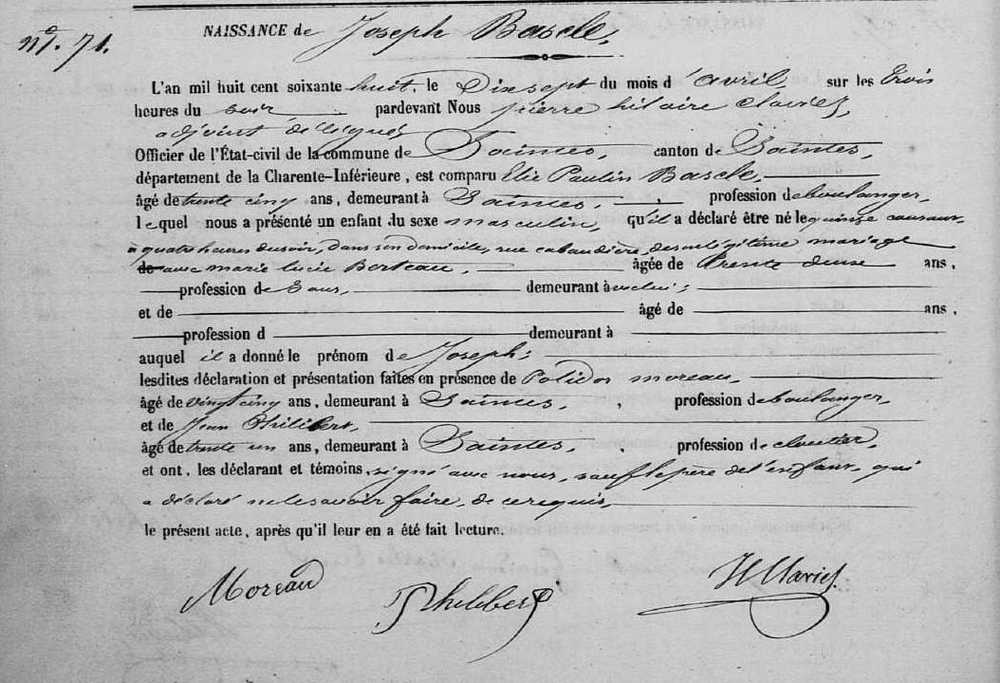 NAISSANCE de Joseph Bascle.
nº. 71.
L'an mil huit cent soixante huit, le Dix sept du mois d'avril, sur les trois
heures du soir pardevant Nous pierre hilaire
adjoint
Officier de l'État-civil de la commune de Saintes, canton de Saintes,
département de la Charente-Inférieure, est comparu Elie Paulin Bascle,
âgé de trente cinq ans, demeurant à Saintes, profession de boulanger,
lequel nous a présenté un enfant du sexe masculin, qu'il a déclaré être né le quinze courant
à quatre heures du soir, dans son domicile, rue cabaudière, de son légitime mariage
de avec marie lucie Berteau, âgée de trente deux ans,
profession de demeurant à
et de âgé de ans,
profession d demeurant à
auquel il a donné le prénom de Joseph;
lesdites déclaration et présentation faites en présence de Polidor moreau,
âgé de vingt cinq ans, demeurant à Saintes, profession de boulanger,
et de Jean Philibert,
âgé de trente un ans, demeurant à Saintes, profession de cloutier,
et ont, les déclarant et témoins, signé avec nous, sauf le père de l'enfant, qui
a déclaré ne le savoir faire, de ce requis,
le présent acte, après qu'il leur en a été fait lecture.
Moreau
Philibert